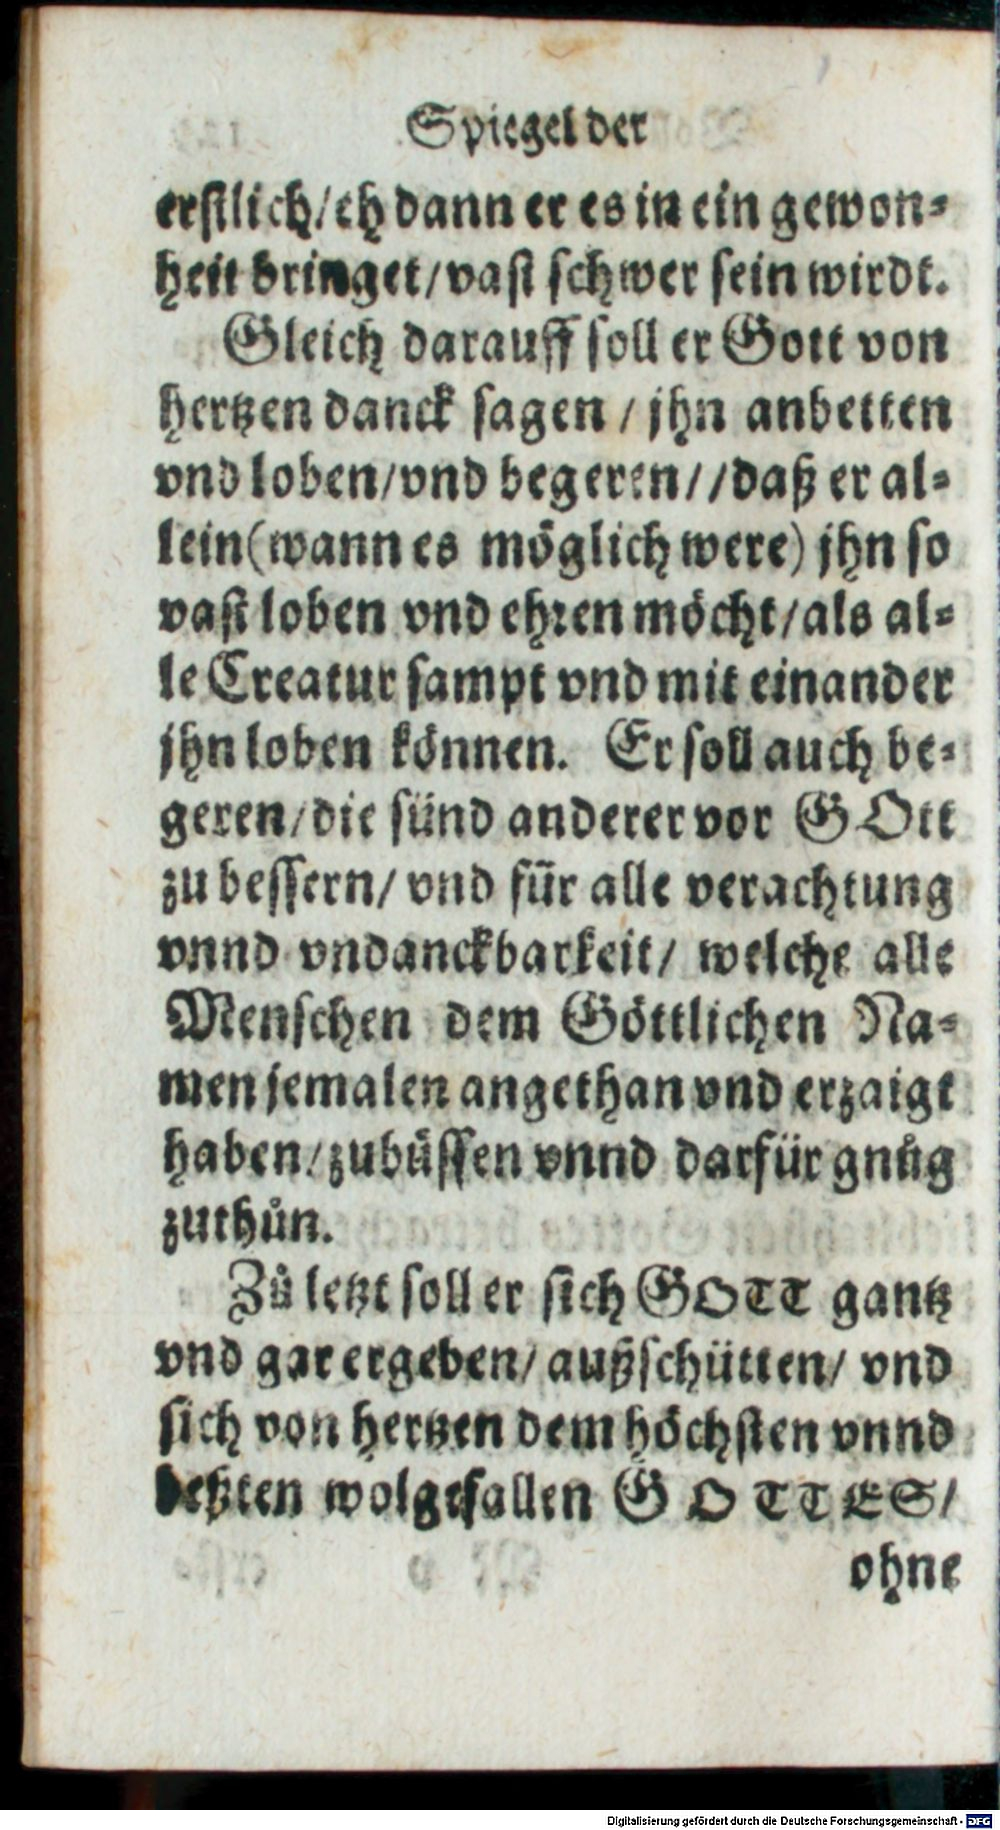 Spiegel der
erstlich/eh dann er es in ein gewon-
heit bringet/vast schwer sein wirdt.
Gleich darauff soll er Gott von
hertzen danck sagen / jhn anbetten
vnd loben/vnd begeren//daß er al-
lein(wann es möglich were) jhn so
vast loben vnd ehren möcht/als al-
le Creatur sampt vnd mit einander
jhn loben können. Er soll auch be-
geren/die sünd anderer vor GOtt
zu bessern/ vnd für alle verachtung
vnnd vndanckbarkeit/ welche alle
Menschen dem Göttlichen Na-
men jemalen angethan vnd erzaigt
haben/zubüssen vnnd darfür gnůg
zuthůn.
Zů letzt soll er sich GOTT gantz
vnd gar ergeben/ außschütten/ vnd
sich von hertzen dem höchsten vnnd
letzten wolgefallen GOTTES/
ohne
Digitalisierung gefördert durch die Deutsche Forschungsgemeinschaft - DFG